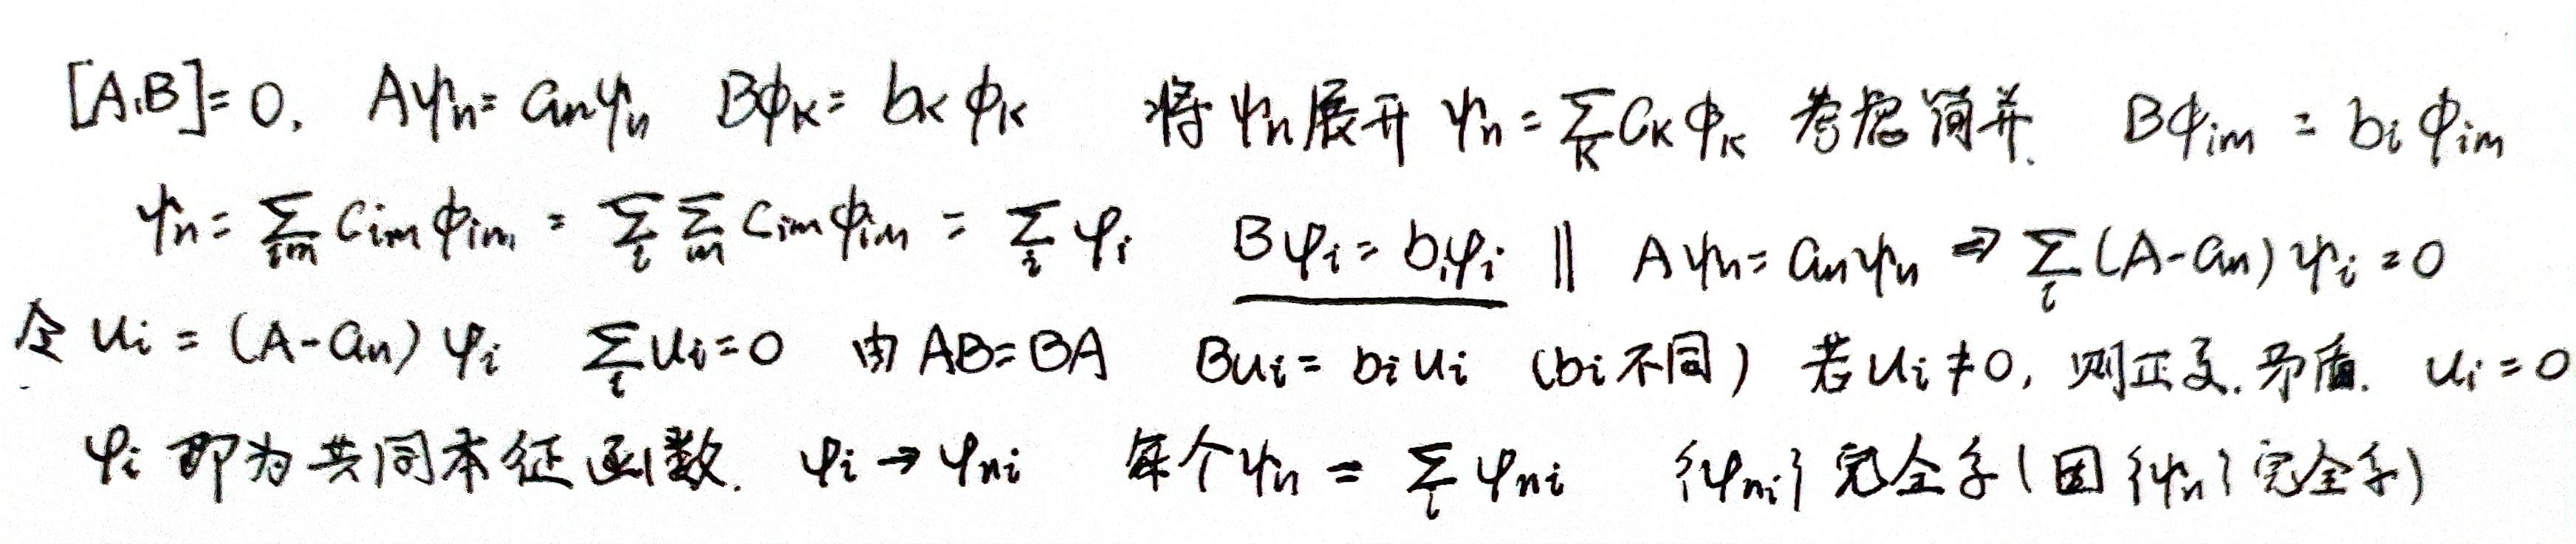 [A,B]=0, Aψn=anψn Bϕk=bkϕk 将ψn展开 ψn=∑k Ckϕk 考虑简并. Bϕim=biϕim
ψn=∑im Cimϕim=∑i∑m Cimϕim=∑i φi Bφi=biφi ‖ Aψn=anψn ⇒ ∑i(A-an)φi=0
令 ui=(A-an)φi ∑i ui=0 由 AB=BA Bui=biui (bi不同) 若ui≠0, 则正交.矛盾. ui=0
φi 即为共同本征函数. φi→φni 每个ψn=∑i φni {φni}完全系(因{ψn}完全系)